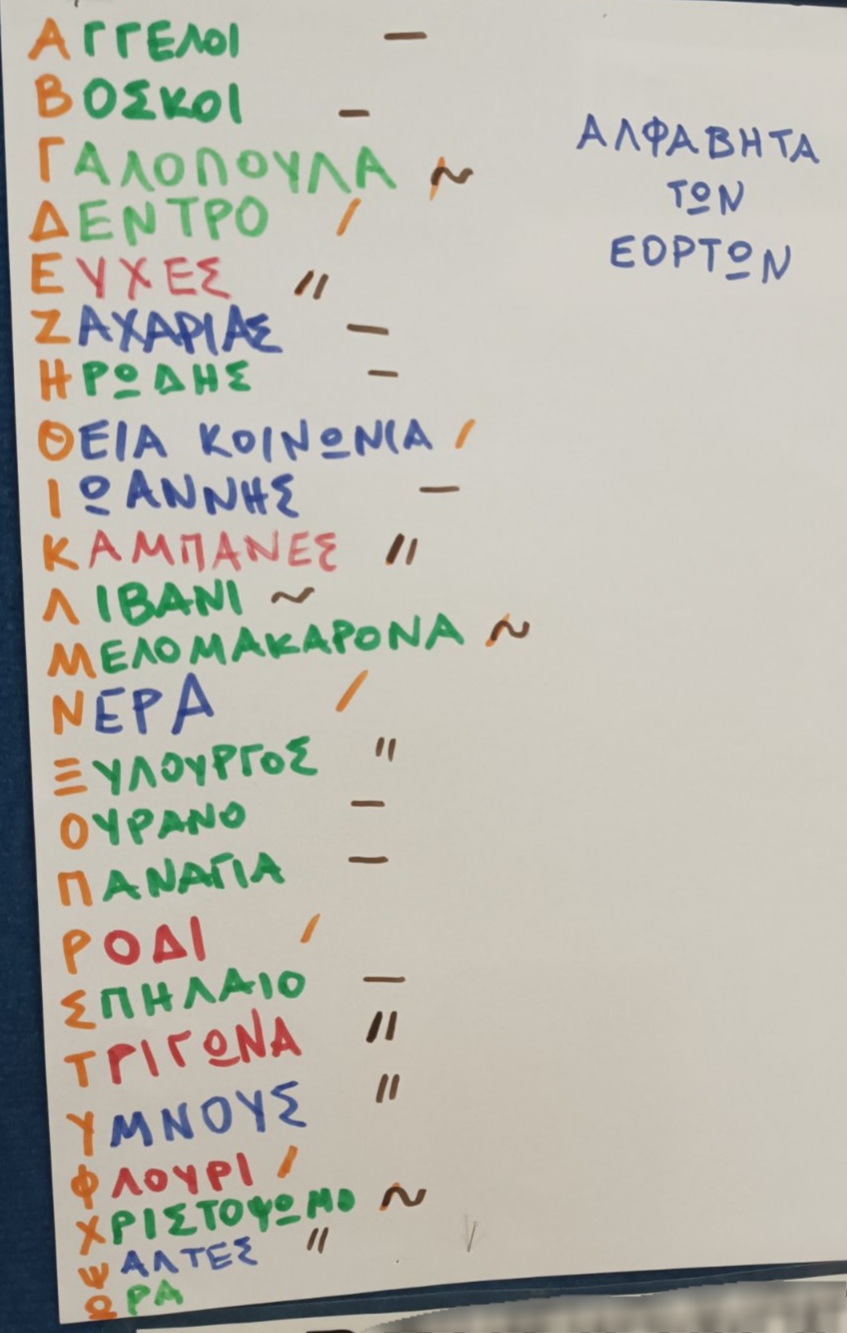 ΑΓΓΕΛΟΙ —
ΒΟΣΚΟΙ —
ΓΑΛΟΠΟΥΛΑ ~
ΔΕΝΤΡΟ /
ΕΥΧΕΣ //
ΖΑΧΑΡΙΑΣ —
ΗΡΩΔΗΣ —
ΘΕΙΑ ΚΟΙΝΩΝΙΑ /
ΙΩΑΝΝΗΣ —
ΚΑΜΠΑΝΕΣ //
ΛΙΒΑΝΙ ~
ΜΕΛΟΜΑΚΑΡΟΝΑ ~
ΝΕΡΑ /
ΞΥΛΟΥΡΓΟΣ //
ΟΥΡΑΝΟ —
ΠΑΝΑΓΙΑ —
ΡΟΔΙ /
ΣΠΗΛΑΙΟ —
ΤΡΙΓΩΝΑ //
ΥΜΝΟΥΣ //
ΦΛΟΥΡΙ /
ΧΡΙΣΤΟΨΩΜΟ ~
ΨΑΛΤΕΣ //
ΩΡΑ
ΑΛΦΑΒΗΤΑ
ΤΩΝ
ΕΟΡΤΩΝ